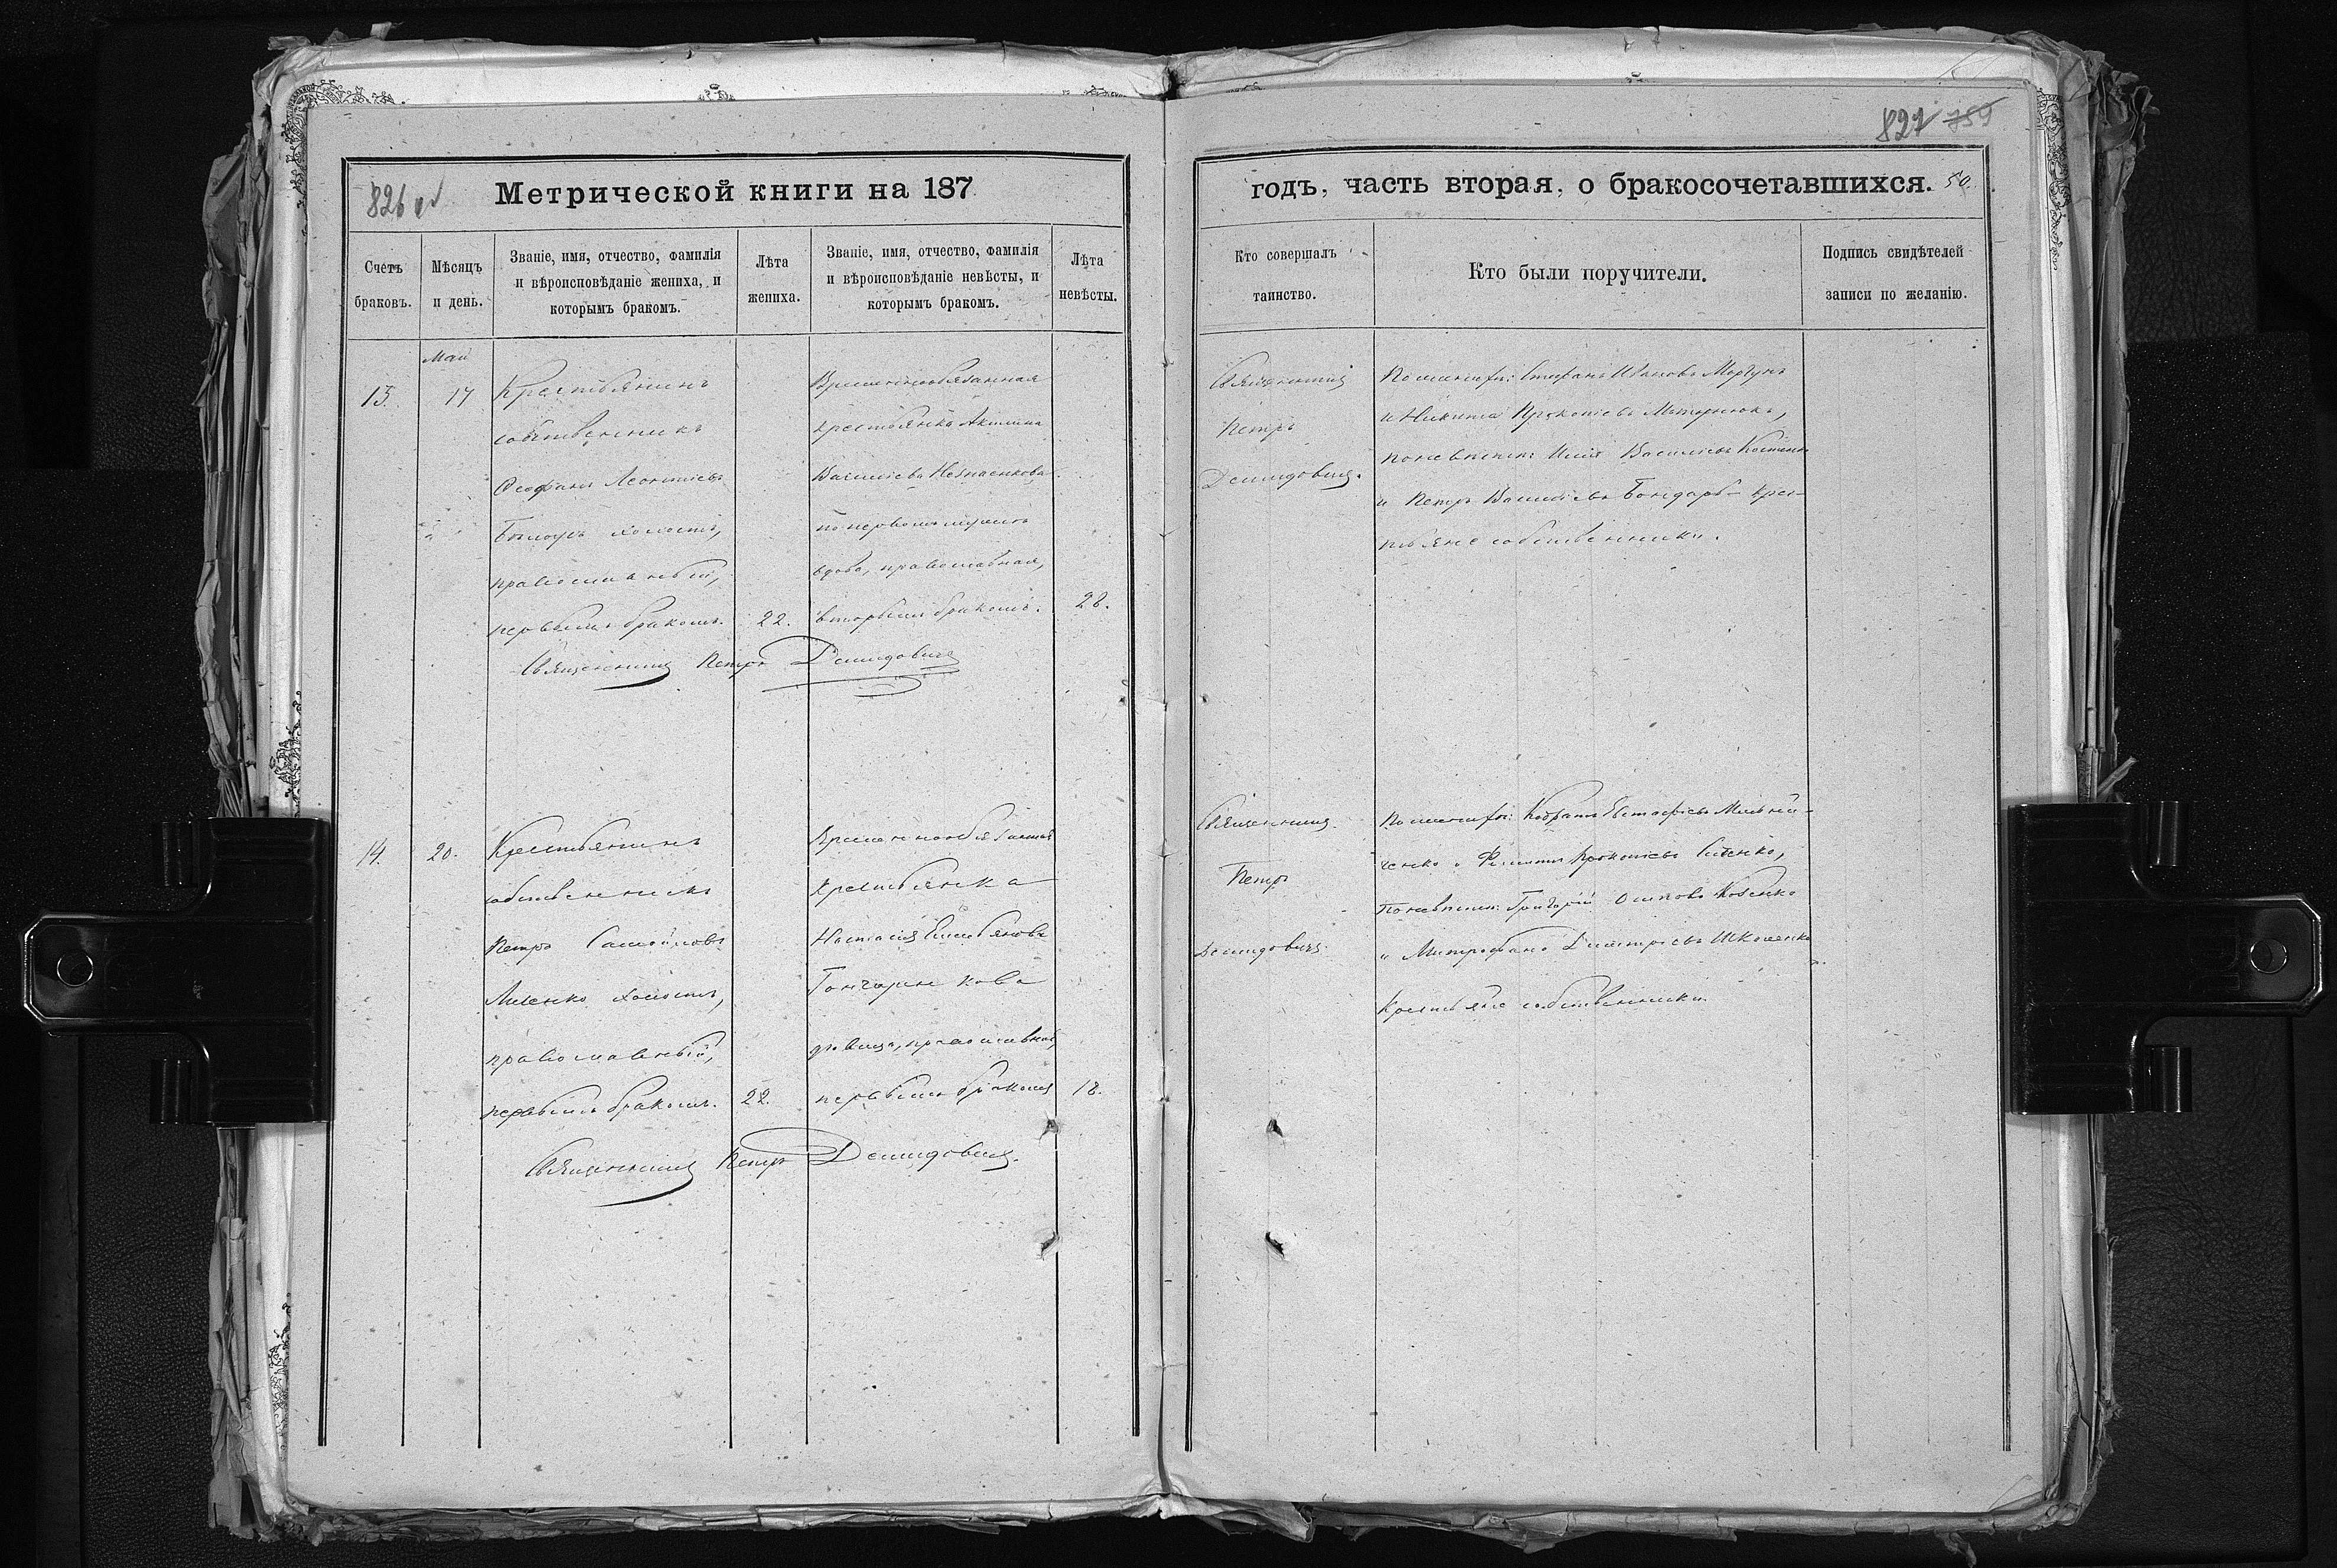 826 об
Метрической книги на 187
Счетъ браковъ.
Мѣсяцъ и день.
Званіе, имя, отчество, фамилія и вѣроисповѣданіе жениха, и которымъ бракомъ.
Лѣта жениха.
Званіе, имя, отчество, фамилія и вѣроисповѣданіе невѣсты, и которымъ бракомъ.
Лѣта невѣсты.
Май
13.
17
Крестьянинъ
собственникъ
Феофанъ Леонтіевъ
холостъ,
православный,
первымъ бракомъ.
22.
Временнообязанная
крестьянка Акилина
Василіева
по первомъ мужѣ
вдова, православная,
вторымъ бракомъ.
28.
Священникъ Петръ Демидовичъ
14.
20.
Крестьянинъ
собственникъ
Петръ Самойловъ
холостъ,
православный,
первымъ бракомъ.
22.
Временнообязанная
крестьянка
Настасія Емельянова
Гончаренкова
дѣвица, православная,
первымъ бракомъ
18.
Священникъ Петръ Демидовичъ.
827 759
годъ, часть вторая, о бракосочетавшихся. 50.
Кто совершалъ таинство.
Кто были поручители.
Подпись свидѣтелей записи по желанію.
Священникъ
Петръ
Демидовичъ.
По женихѣ: Стефанъ Ивановъ Моргунъ
и Никита Прокопіевъ
по невѣстѣ: Илія Василіевъ Костенко
и Петръ Василіевъ Бондарь – крес-
тьяне собственники.
Священникъ
Петръ
Демидовичъ
По женихѣ: Кодратъ Евстафіевъ Мельни-
ченко и Филиппъ Прокопіевъ
По невѣстѣ: Григорій Осиповъ
и Митрофанъ Димитріевъ
Крестьяне собственники.